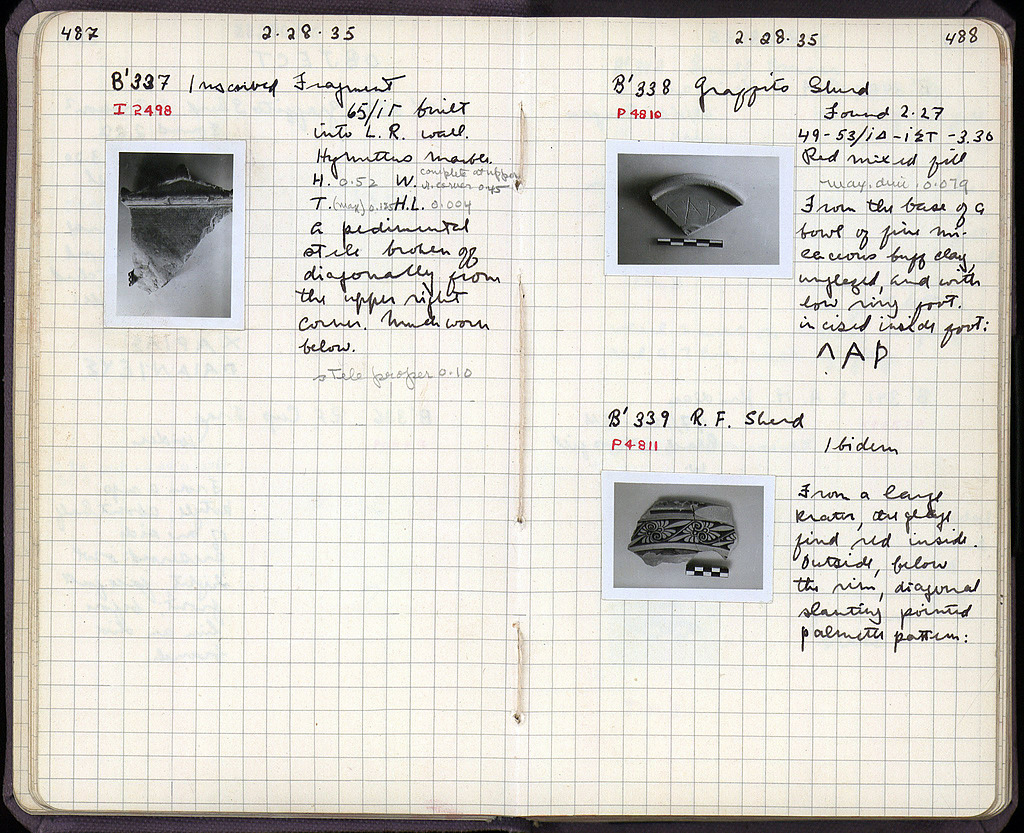 487
2·28·35
B'337 Inscribed Fragment
I 2498
65/ΙΓ built
into L. R. wall.
Hymettus marble.
H. 0.52 W. complete at upper
r. corner 0.45
T. (max) 0.125 H.L. 0.004
A pedimental
stele broken off
diagonally from
the upper right
corner. Much worn
below.
stele proper 0.10
2·28·35
488
B'338 Graffito Sherd
P 4810
Found 2·27
-3.30
Red mixed fill
max. dim. 0.079
From the base of a
bowl of fine mi-
caceous buff clay,
unglazed, and with
low ring foot.
incised inside foot:
ΛΑΡ
B'339 R. F. Sherd
P 4811
Ibidem
From a large
krater, the glaze
fired red inside.
Outside, below
the rim, diagonal
slanting pointed
palmette pattern: